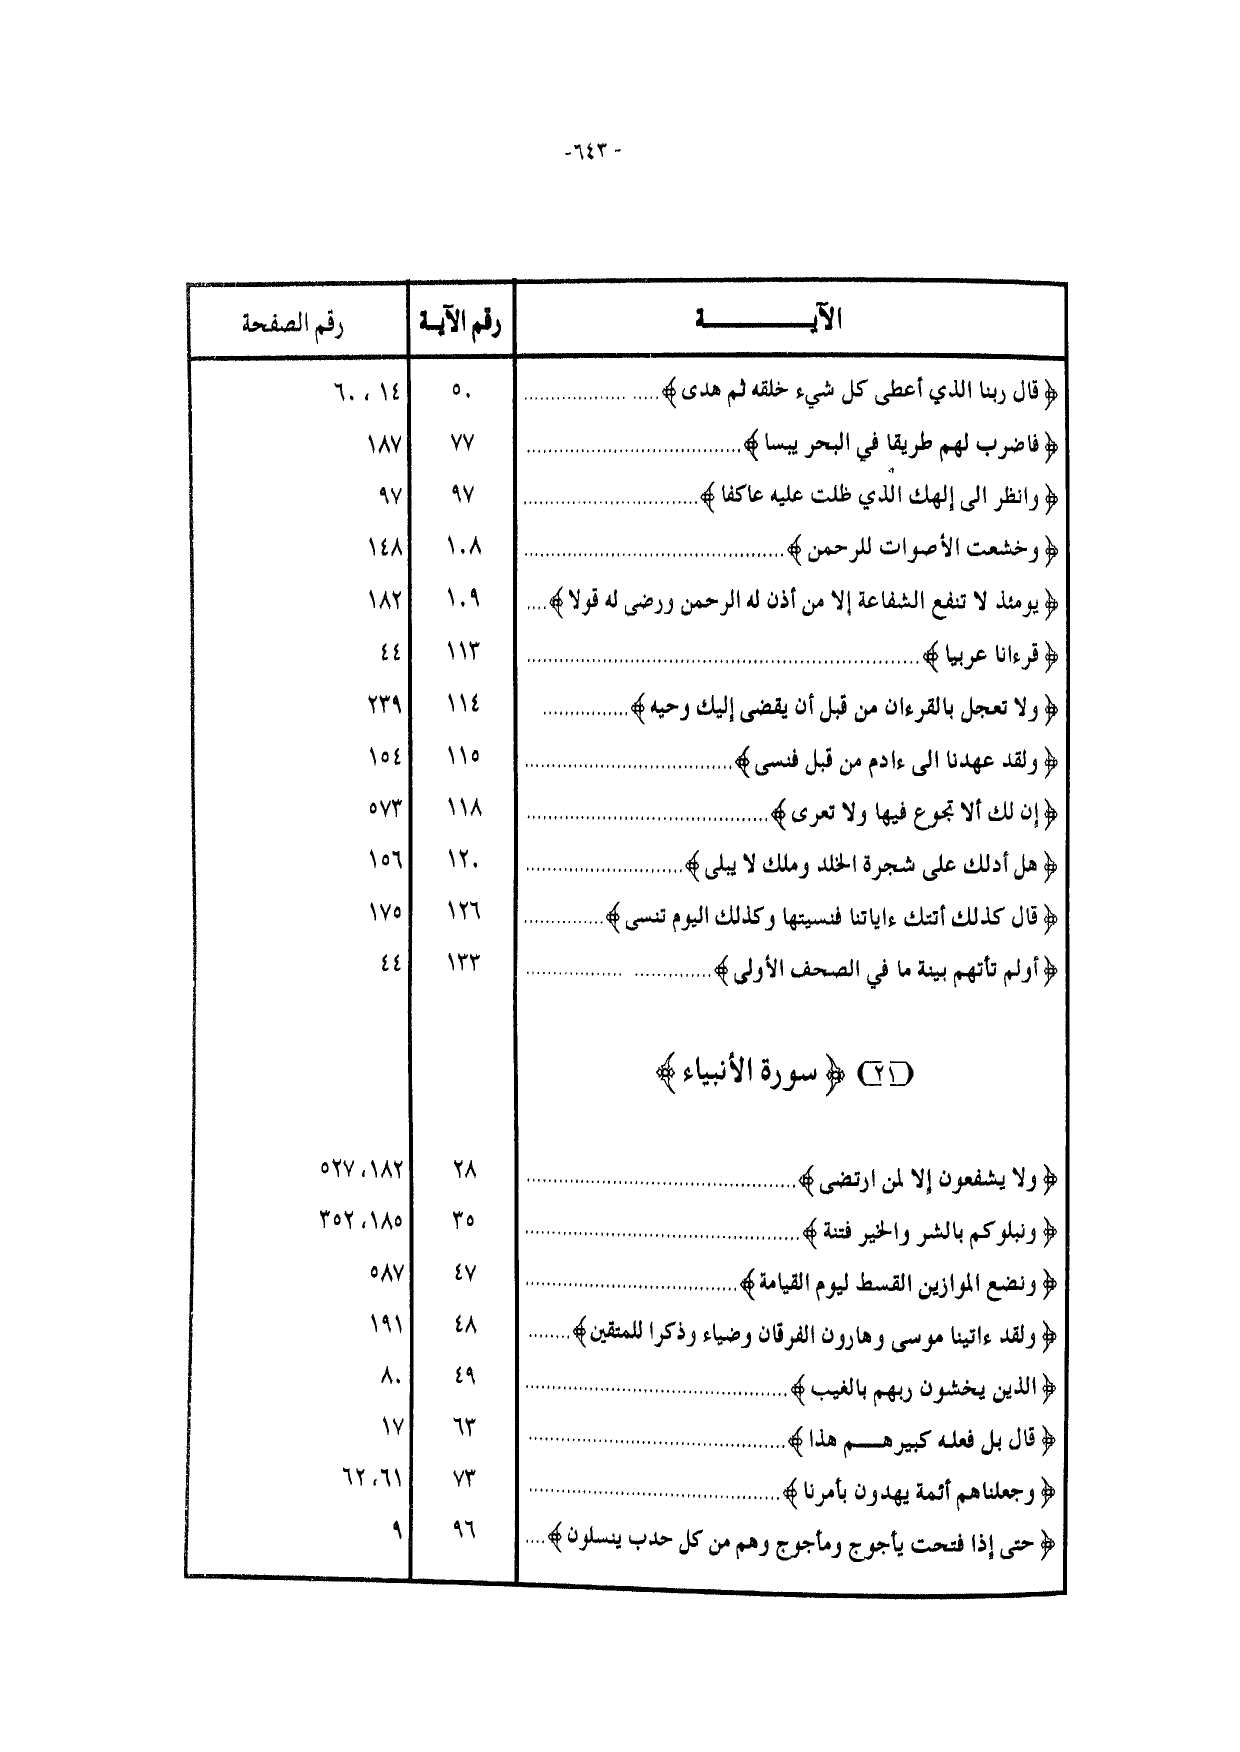 - ٦٤٣-
الآيـــــــــة رقم الآيـة رقم الصفحة
﴿ قال ربنا الذي أعطى كل شيء خلقه ثم هدى ﴾..... .................. ٥٠ ١٤ ، ٦٠
﴿ فاضرب لهم طريقا في البحر يبسا ﴾.................................... ٧٧ ١٨٧
﴿ وانظر الى إلهك الذي ظلت عليه عاكفا ﴾.............................. ٩٧ ٩٧
﴿ وخشعت الأصوات للرحمن ﴾............................................ ١٠٨ ١٤٨
﴿ يومئذ لا تنفع الشفاعة إلا من أذن له الرحمن ورضى له قولا ﴾.... ١٠٩ ١٨٢
﴿ قرءانا عربيا ﴾.................................................................. ١١٣ ٤٤
﴿ ولا تعجل بالقرءان من قبل أن يقضى إليك وحيه ﴾................ ١١٤ ٢٣٩
﴿ ولقد عهدنا الى ءادم من قبل فنسى ﴾................................... ١١٥ ١٥٤
﴿ إن لك ألا تجوع فيها ولا تعرى ﴾......................................... ١١٨ ٥٧٣
﴿ هل أدلك على شجرة الخلد وملك لا يبلى ﴾........................... ١٢٠ ١٥٦
﴿ قال كذلك أتتك ءاياتنا فنسيتها وكذلك اليوم تنسى ﴾.............. ١٢٦ ١٧٥
﴿ أولم تأتهم بينة ما في الصحف الأولى ﴾............. ................ ١٣٣ ٤٤
(٢١) ﴿ سورة الأنبياء ﴾
﴿ ولا يشفعون إلا لمن ارتضى ﴾.............................................. ٢٨ ١٨٢، ٥٢٧
﴿ ونبلوكم بالشر والخير فتنة ﴾.............................................. ٣٥ ١٨٥، ٣٥٢
﴿ ونضع الموازين القسط ليوم القيامة ﴾.................................... ٤٧ ٥٨٧
﴿ ولقد ءاتينا موسى وهارون الفرقان وضياء وذكرا للمتقين ﴾....... ٤٨ ١٩١
﴿ الذين يخشون ربهم بالغيب ﴾............................................ ٤٩ ٨٠
﴿ قال بل فعله كبيرهـــم هذا ﴾............................................ ٦٣ ١٧
﴿ وجعلناهم أئمة يهدون بأمرنا ﴾........................................... ٧٣ ٦١، ٦٢
﴿ حتى إذا فتحت يأجوج ومأجوج وهم من كل حدب ينسلون ﴾.... ٩٦ ٩